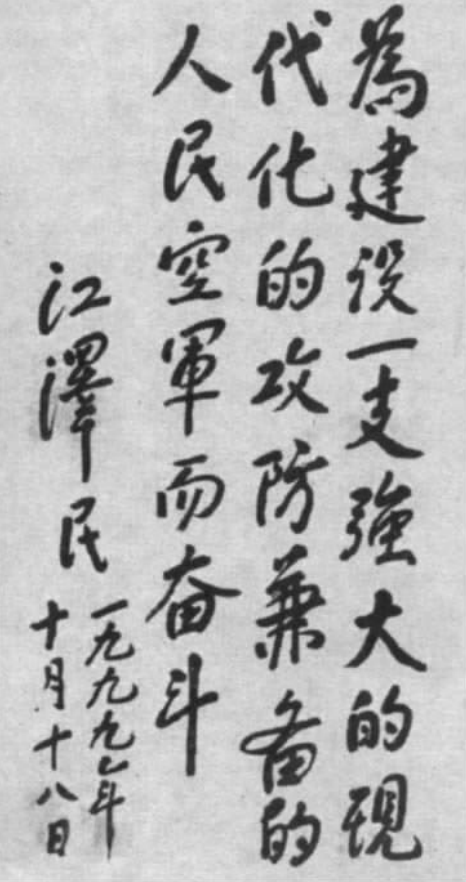 為建设一支強大的現
代化的攻防兼备的
人民空軍而奋斗
江澤民
一九九九年
十月十八日